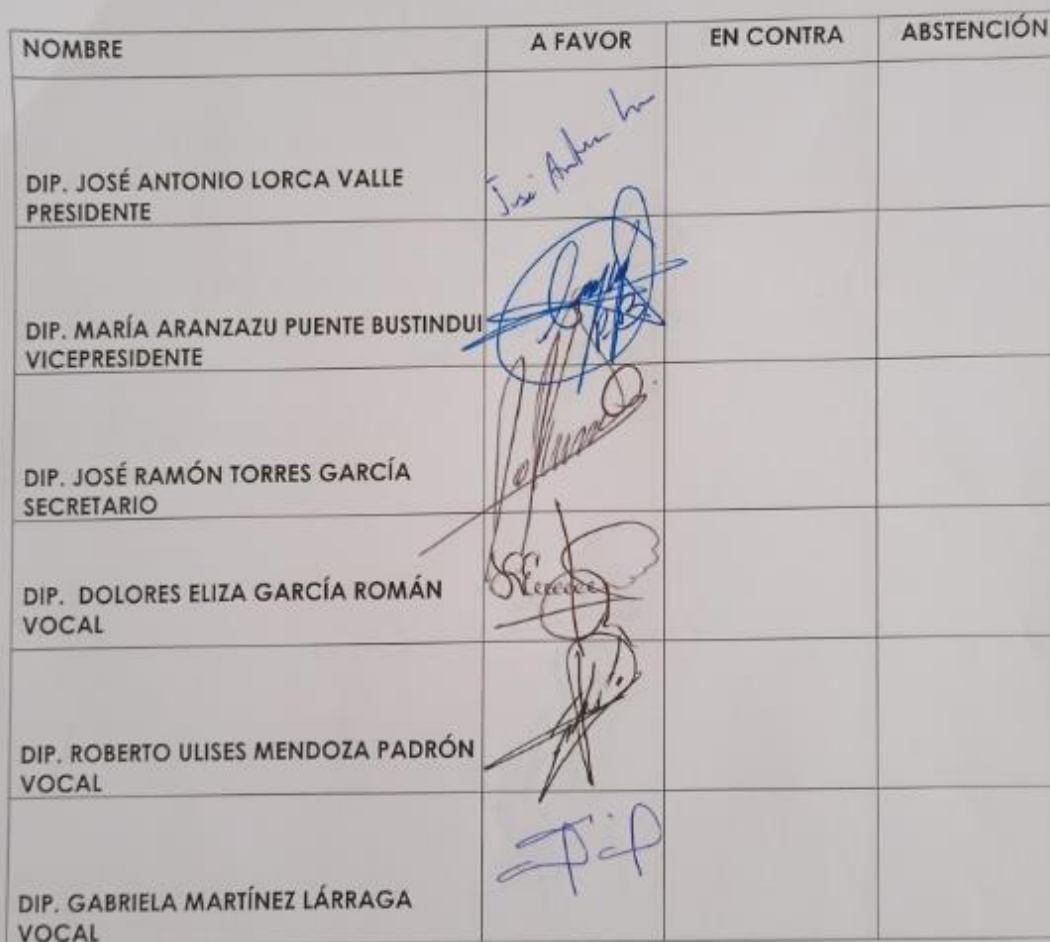 NOMBRE A FAVOR EN CONTRA ABSTENCIÓN
DIP. JOSÉ ANTONIO LORCA VALLE
PRESIDENTE
José
DIP. MARÍA ARANZAZU PUENTE BUSTINDUI
VICEPRESIDENTE
DIP. JOSÉ RAMÓN TORRES GARCÍA
SECRETARIO
DIP. DOLORES ELIZA GARCÍA ROMÁN
VOCAL
DIP. ROBERTO ULISES MENDOZA PADRÓN
VOCAL
DIP. GABRIELA MARTÍNEZ LÁRRAGA
VOCAL